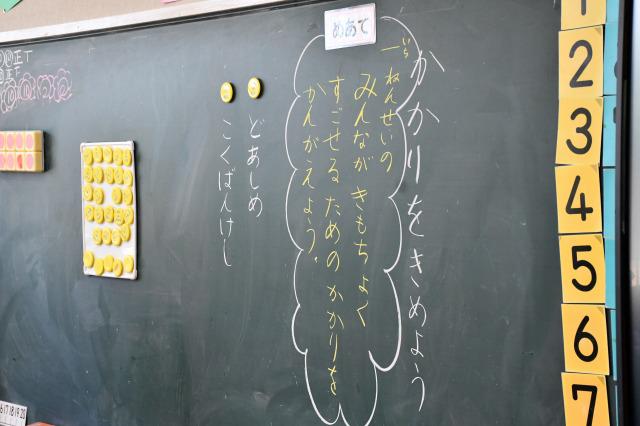 かかりをきめよう
めあて
いち
一ねんせいの
みんなが きもちよく
すごせる ための かかりを
かんがえよう。
どあしめ
こくばんけし
1
2
3
4
5
6
7